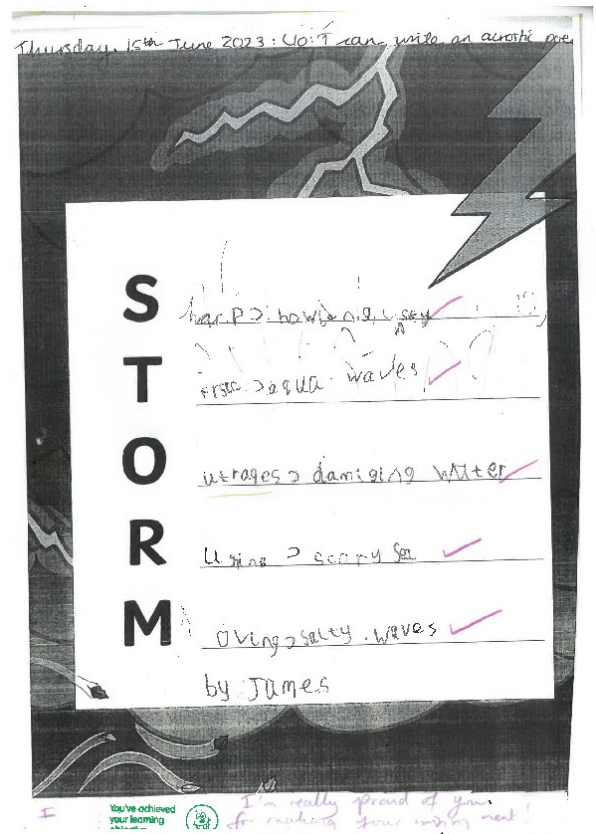 Thursday, 15th June 2023: LO: I can write an acrostic poe
S harp, howling, sky
T aqua waves
O utrages, damiging water
R Uging, scary Sea
M oving, salty. waves
by James
You've achieved
your learning
I'm really proud of you
for making your writing neat!
I